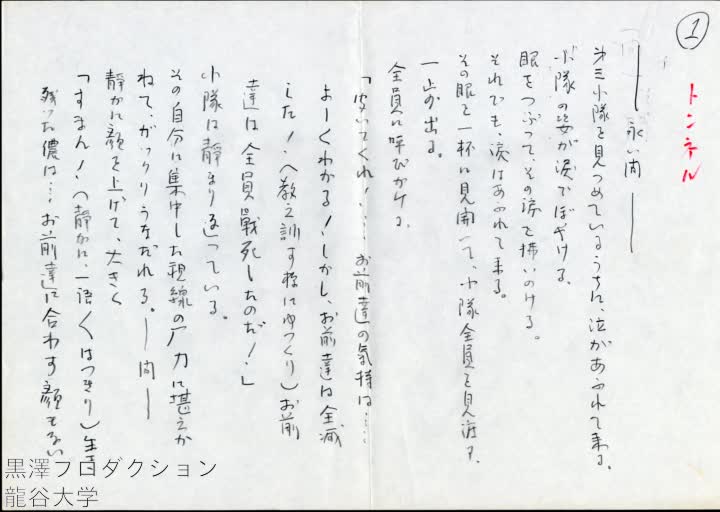 1
トンネル
―― 永い間 ――
第三小隊を見つめているうちに、泣があふれて来る。
小隊の姿が涙でぼやける。
眼をつぶって、その涙を拂いのける。
それでも、涙はあふれて来る。
その眼を一杯に見開いて、小隊全員を見渡す。
一歩出る。
全員に呼びかける。
「聞いてくれ!……お前達の気持は……
よーくわかる!しかし、お前達は全滅
した!(教え訓す様にゆっくり)お前
達は全員戦死したのだ!」
小隊は静まり返っている。
その自分に集中した視線の圧力に堪えか
ねて、ガックリうなだれる。― 間 ―
静かに顔を上げて、大きく
「すまん!(静かに、一語〱はっきり)生き
残った儂は…お前達に合わす顔もない
黒澤プロダクション
龍谷大学